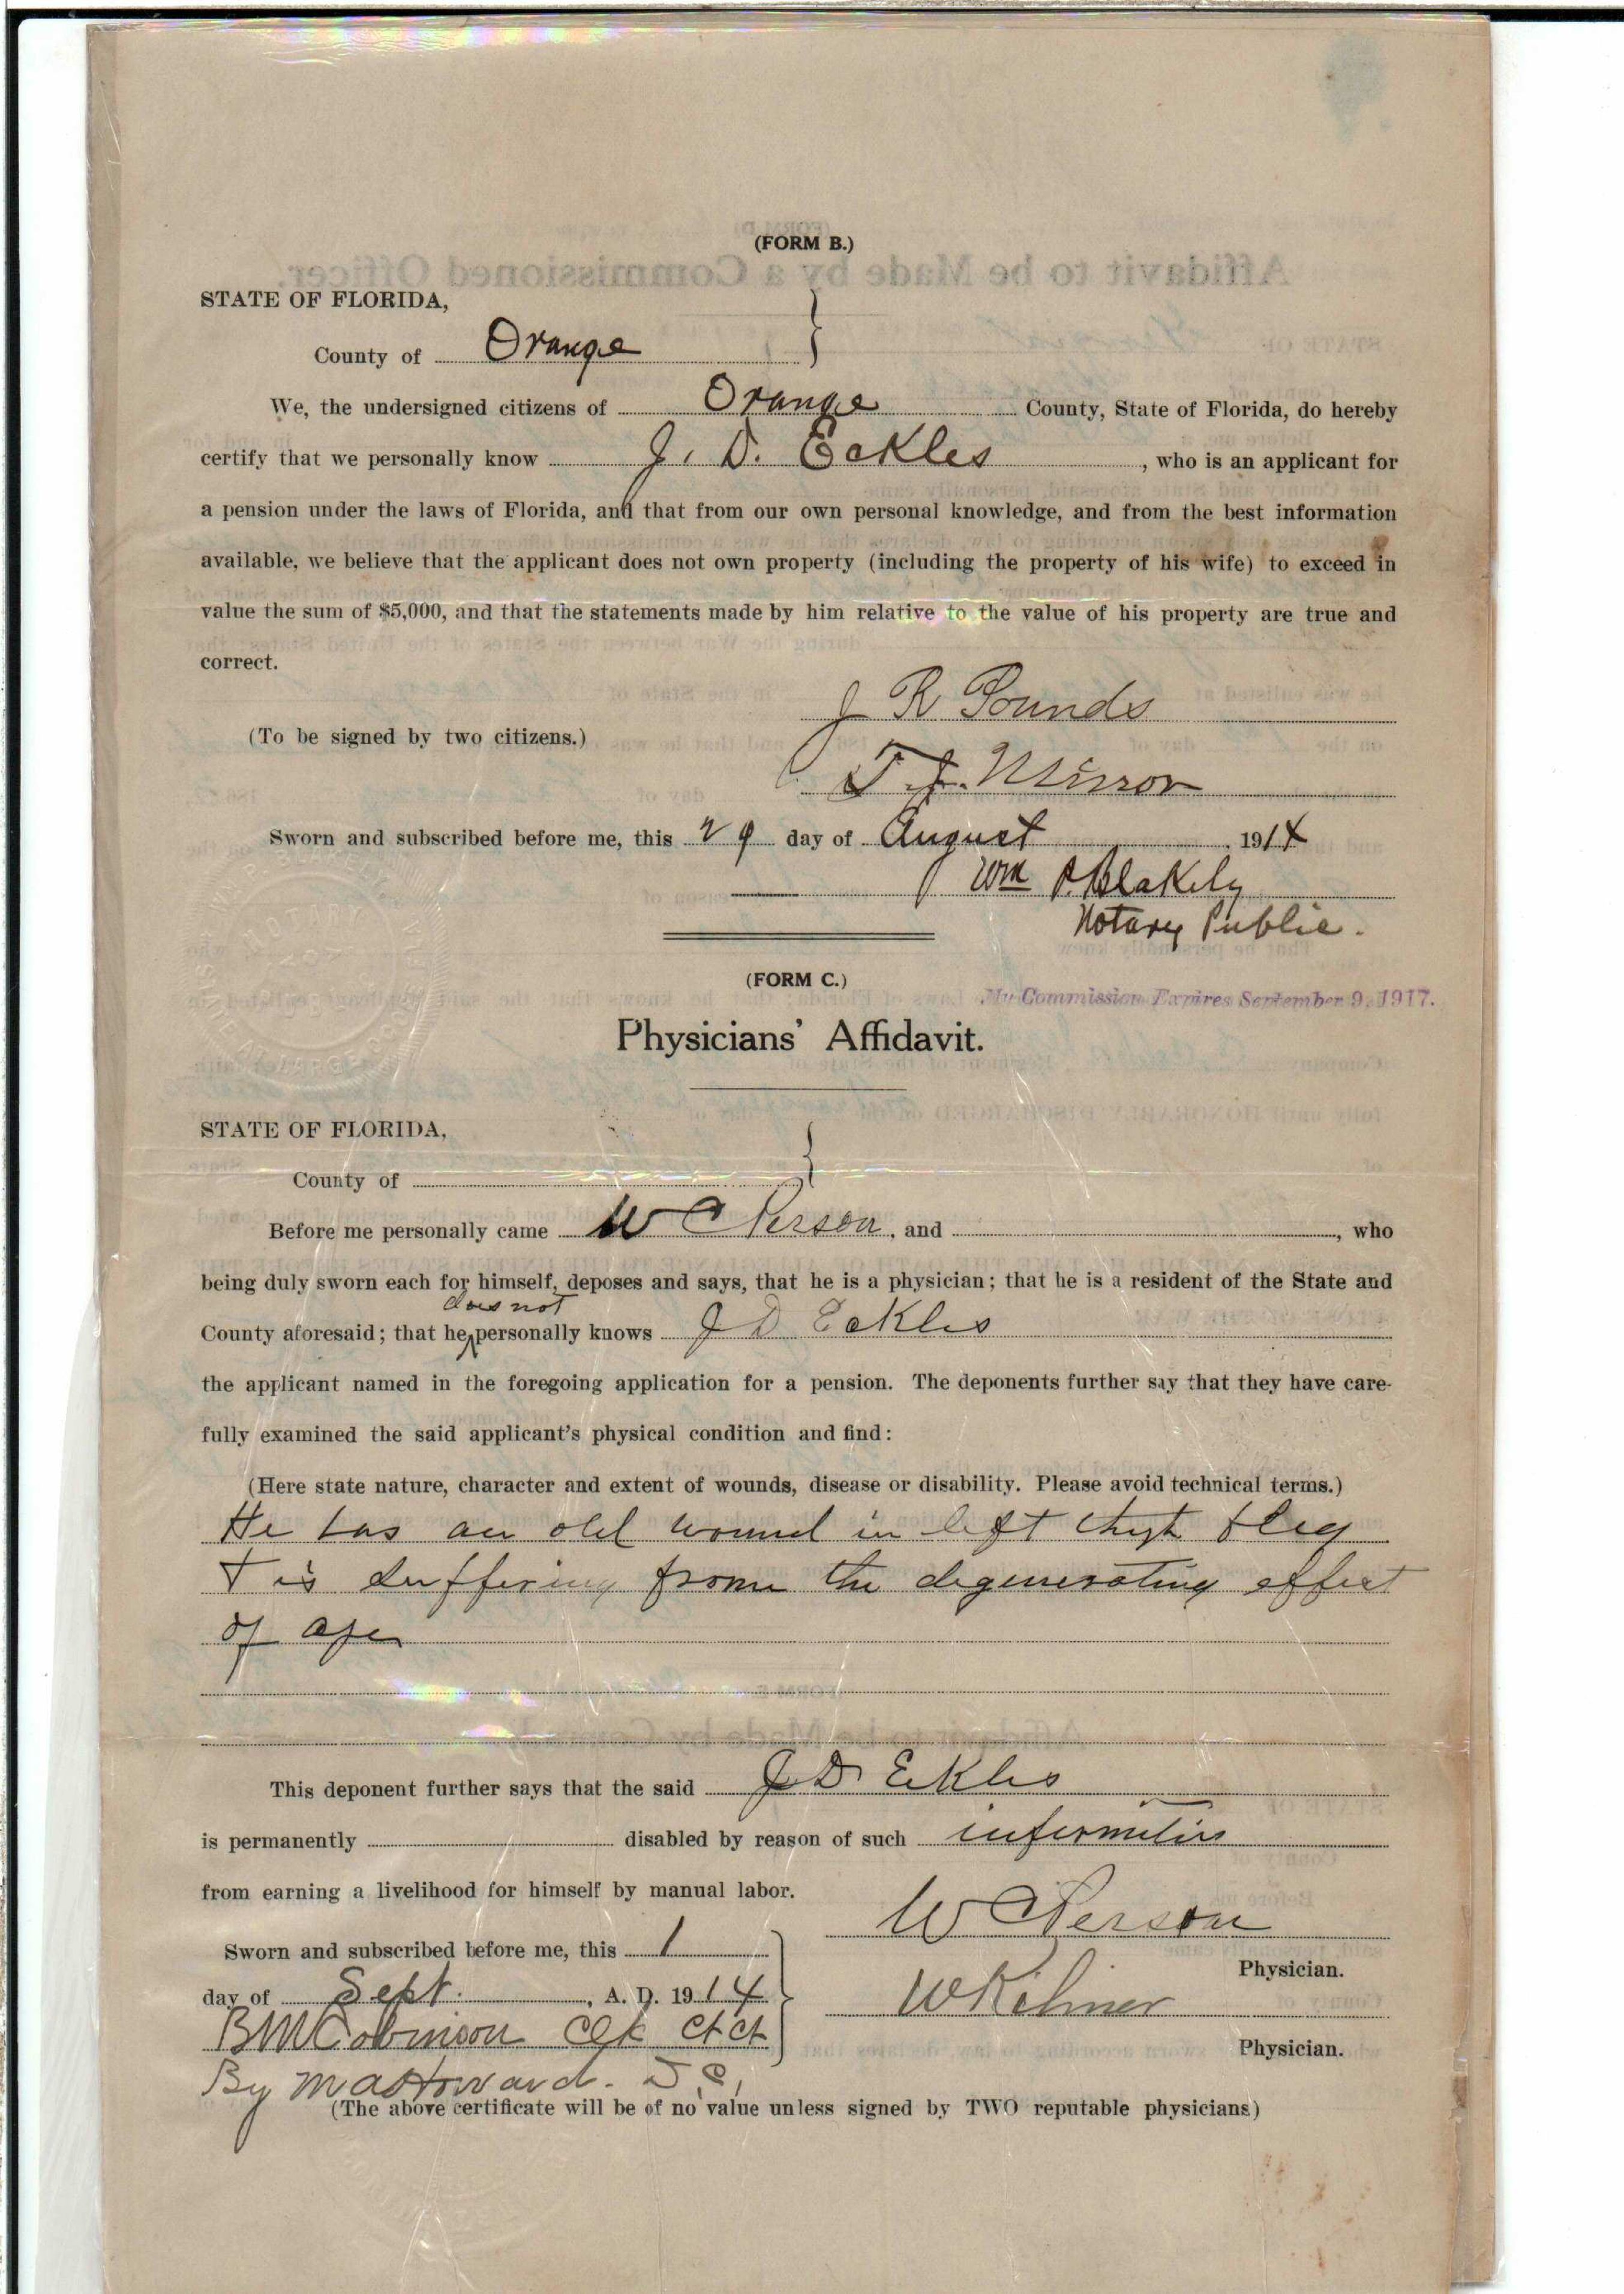 (FORM B.)
STATE OF FLORIDA,
County of Orange
We, the undersigned citizens of Orange County, State of Florida, do hereby
certify that we personally know J. D. Eckles, who is an applicant for
a pension under the laws of Florida, and that from our own personal knowledge, and from the best information
available, we believe that the applicant does not own property (including the property of his wife) to exceed in
value the sum of $5,000, and that the statements made by him relative to the value of his property are true and
correct.
J R Pounds
(To be signed by two citizens.)
T. J. Minor
Sworn and subscribed before me, this 29 day of August, 1914
Wm P. Blakely
Notary Public.
(FORM C.)
My Commission Expires September 9, 1917.
Physicians' Affidavit.
STATE OF FLORIDA,
County of
Before me personally came W C Person, and , who
being duly sworn each for himself, deposes and says, that he is a physician; that he is a resident of the State and
does not
County aforesaid; that he personally knows J D Eckles
the applicant named in the foregoing application for a pension. The deponents further say that they have care-
fully examined the said applicant's physical condition and find:
(Here state nature, character and extent of wounds, disease or disability. Please avoid technical terms.)
He has an old wound in left thigh & leg
& is suffering from the degenerating effect
of age
This deponent further says that the said J D Eckles
is permanently disabled by reason of such infirmities
from earning a livelihood for himself by manual labor.
W C Person
Sworn and subscribed before me, this 1
Physician.
day of Sept., A. D. 1914
B M Robinson Clk Ct Ct
Physician.
By M A Howard. D. C.
(The above certificate will be of no value unless signed by TWO reputable physicians)